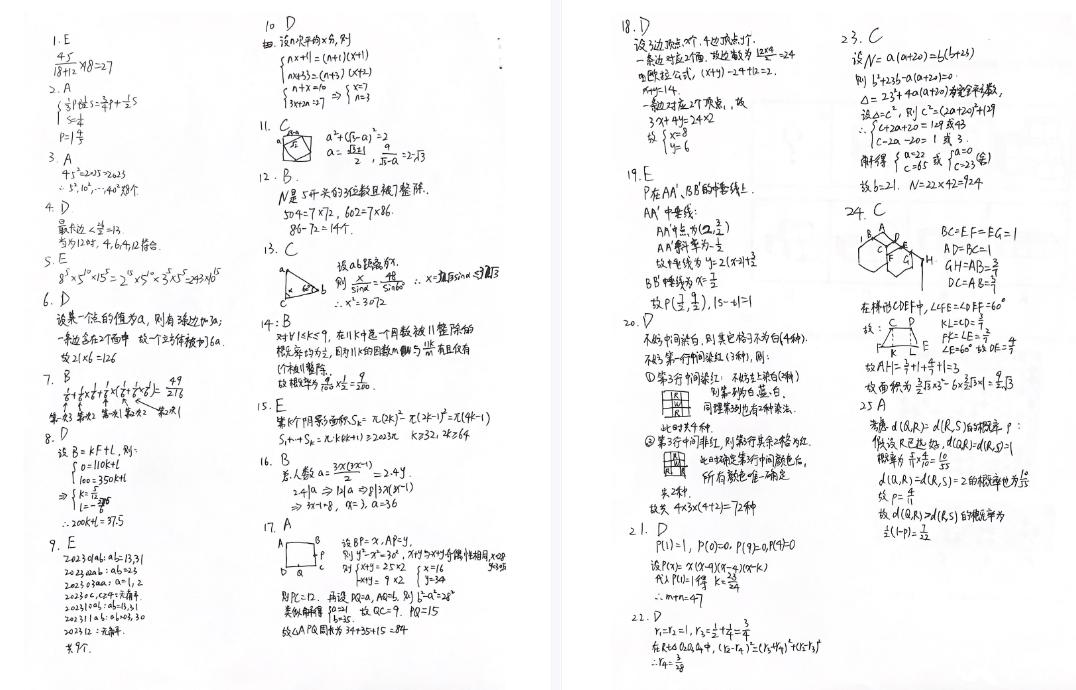 1. E
45/(18+12) ×18=27
2. A
S=1/4
P=1 4/5
3. A
45²=2025>2023
∴ 5², 10², …, 40² 共8个.
4. D.
最长边 < =13.
当为12时, 4, 6, 4, 12符合.
5. E
8⁵×5¹⁰×15⁵=2¹⁵×5¹⁰×3⁵×5⁵=243×10¹⁵
6. D
设某一个点的值为a, 则有3条边加3a;
一条边含在2个面中 故一个立方体被加了6a.
故21×6=126
7. B
49/216
8. D
设B=kF+L, 则:
0=110k+L
100=350k+L
⇒ k=5/12
∴200k+L=37.5
9. E
202301ab: ab=13,31
202302ab: ab=23
202303aa: a=1, 2
202310ab: ab=13,31
202311ab: ab=03,30
202312: 无解.
共9个.
10 D
设n次平均x分, 则
nx+11=(n+1)(x+1)
nx+33=(n+3)(x+2)
n+x=10
3x+2n=27
⇒ x=7
n=3
11. C
a²+(√3-a)²=2
a=(√3±1)/2,
=2-√3
12. B.
N是5开头的3位数且被7整除.
504=7×72, 602=7×86.
86-72=14个.
13. C
a
60°
b
c
设ab距离为x.
则 x/sinα = 48/sin60°
∴x²=3072
14: B
对∀1≤k≤9, 在11k中选一个因数被11整除的
概率均为1/2, 因为11k的因数m与11k/m有且仅有
1个被11整除.
故概率为9/100×1/2=9/200.
15. E
第k个阴影面积Sₖ=π(2k)²-π(2k-1)²=π(4k-1)
S₁+…+Sₖ=π·k(2k+1)≥2023π k≥32, 2k≥64
16. B
总人数a=3x(3x-1)/2=2.4y.
24|a ⇒12|a ⇒8|3x(3x-1)
⇒3x-1=8, x=3, a=36
17. A
A
B
P
C
D
Q
设BP=x, AP=y.
则y²-x²=30², x+y与x-y奇偶性相同, x<28
x=16
y=34
则PC=12. 再设DQ=a, AQ=b, 则b²-a²=28²
类似解得 a=21
b=35. 故QC=9. PQ=15
故△APQ周长为34+35+15=84
18. D
设3边顶点x个, 4边顶点y个.
一条边对应2个面. 故边数为12×4/2=24
由欧拉公式, (x+y)-24+12=2.
x+y=14.
一条边对应2个顶点, 故
3x+4y=24×2
故 x=8
y=6
19. E
P在AA', BB'的中垂线上.
AA'中垂线:
AA'中点为(2, 3/2)
AA'斜率为-1/2
故中垂线为y=2(x-2)+3/2
BB'中垂线为x=7/2
故P(7/2, 9/2), |s-t|=1
20. D
不妨中间染白, 则其它格子不为白(4种).
不妨第一行中间染红(3种), 则:
①第3行中间染红: 不妨左上染白(2种)
则第一列为白蓝白.
同理第3列也有2种染法.
R
W
R
此时共4种.
②第3行中间非红, 则第3行其余2格为红.
此时确定第3行中间颜色后,
所有颜色唯一确定
R
W
R
R
共2种.
故共4×3×(4+2)=72种
21. D
P(1)=1, P(0)=0, P(9)=0, P(4)=0
设P(x)=x(x-9)(x-4)(x-k)
代入P(1)=1得 k=23/24
∴m+n=47
22. D
r₁=r₂=1, r₃=1/2+1/4=3/4
∴r₄=3/28
23. C
设N=a(a+20)=b(b+23)
则b²+23b-a(a+20)=0
△=23²+4a(a+20)为完全平方数,
设△=c², 则c²=(2a+20)²+129
∴ c+2a+20=129或43
c-2a-20=1或3.
解得 a=22
c=65
或 a=0
c=23 (舍)
故b=21. N=22×42=924
24. C
BC=EF=EG=1
AD=BC=1
在梯形CDEF中, ∠CFE=∠DEF=60°
故:
C
D
F
K
L
E
25 A
考虑d(Q,R)=d(R,S)的概率P:
假设R已选好, d(Q,R)=d(R,S)=1
d(Q,R)=d(R,S)=2的概率也为10/55
故P=4/11
故d(Q,R)>d(R,S)的概率为
1/2(1-P)=7/22